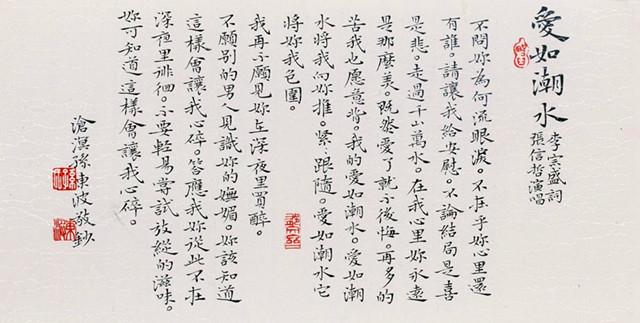 愛如潮水
李宗盛詞
張信哲演唱
不問妳為何流眼淚。不在乎妳心里還
有誰。請讓我給安慰。不論結局是喜
是悲。走過千山萬水。在我心里妳永遠
是那麼美。既然愛了就不後悔。再多的
苦我也愿意背。我的愛如潮水。愛如潮
水將我向妳推。緊〻跟隨。愛如潮水它
將妳我包圍。
我再不願見妳在深夜里買醉。
不願别的男人見識妳的嫵媚。妳該知道
這樣會讓我心碎。答應我妳從此不在
深夜里徘徊。不要輕易嘗試放縱的滋味。
妳可知道這樣會讓我心碎。
滄溟孫東波敬鈔